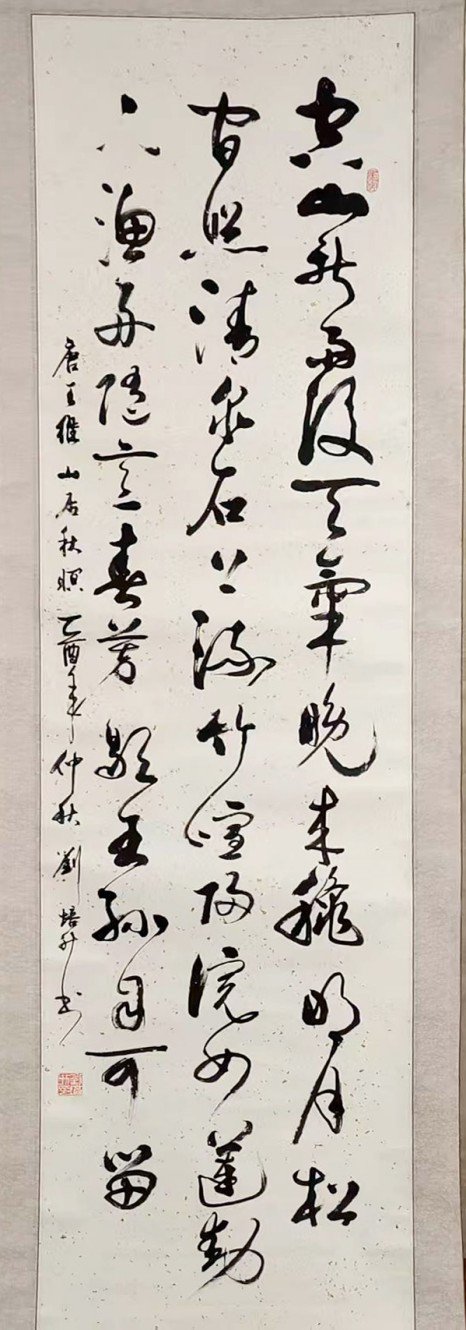 空山新雨後天氣晚來龝明月松
間照清泉石上流竹喧歸浣女蓮動
下漁舟隨意春芳歇王孫自可留
唐王維山居秋暝乙酉年仲秋劉培升書